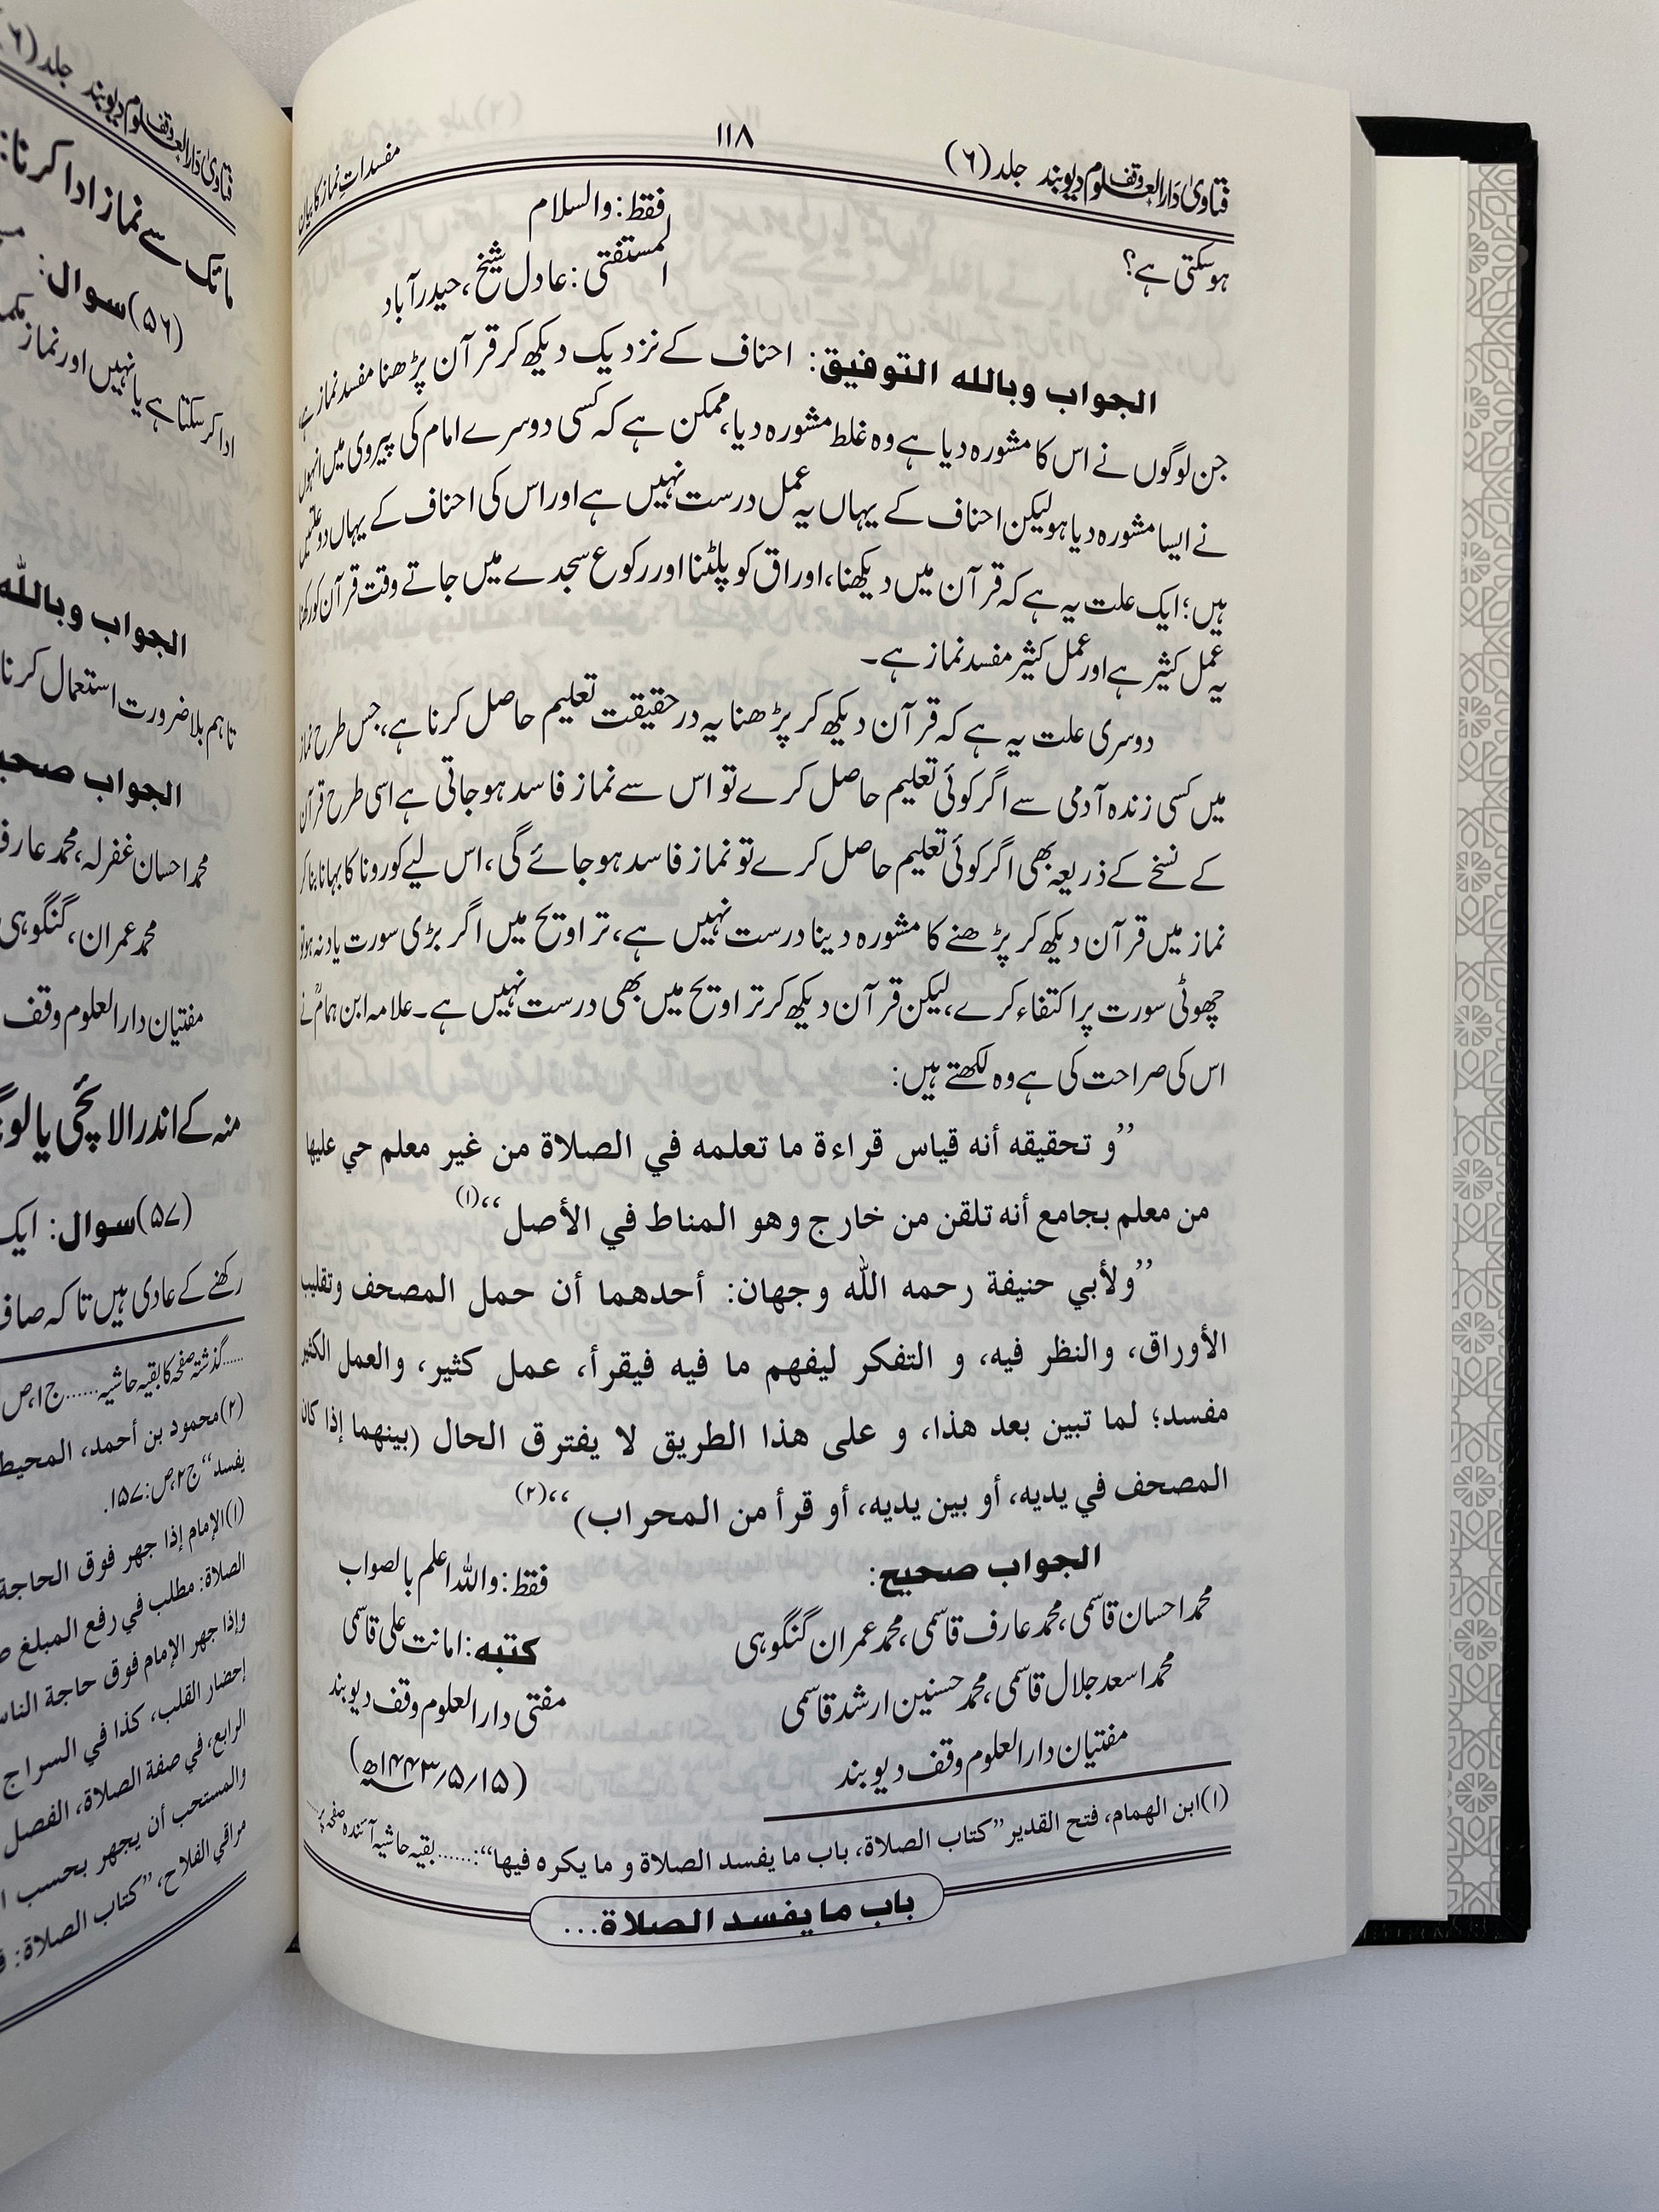 فتاویٰ دارالعلوم وقف دیوبند جلد (۶)
۱۱۸
مفسداتِ نماز کا بیان
ہوسکتی ہے؟
فقط: والسلام
المستفتی: عادل شیخ، حیدرآباد
الجواب وباللہ التوفیق: احناف کے نزدیک دیکھ کر قرآن پڑھنا مفسد نماز ہے،
جن لوگوں نے اس کا مشورہ دیا ہے وہ غلط مشورہ دیا، ممکن ہے کہ کسی دوسرے امام کی پیروی میں انہوں
نے ایسا مشورہ دیا ہو لیکن احناف کے یہاں یہ عمل درست نہیں ہے اور اس کی احناف کے یہاں دو علتیں
ہیں؛ ایک علت یہ ہے کہ قرآن میں دیکھنا، اوراق کو پلٹنا اور رکوع سجدے میں جاتے وقت قرآن کو رکھنا
یہ عمل کثیر ہے اور عمل کثیر مفسد نماز ہے۔
دوسری علت یہ ہے کہ قرآن دیکھ کر پڑھنا یہ درحقیقت تعلیم حاصل کرنا ہے، جس طرح نماز
میں کسی زندہ آدمی سے اگر کوئی تعلیم حاصل کرے تو اس سے نماز فاسد ہوجاتی ہے اسی طرح قرآن
کے نسخے کے ذریعہ بھی اگر کوئی تعلیم حاصل کرے تو نماز فاسد ہوجائے گی، اس لیے کورونا کا بہانا بنا کر
نماز میں قرآن دیکھ کر پڑھنے کا مشورہ دینا درست نہیں ہے، تراویح میں اگر بڑی سورت یاد نہ ہو تو
چھوٹی سورت پر اکتفاء کرے، لیکن قرآن دیکھ کر تراویح میں بھی درست نہیں ہے۔ علامہ ابن ہمامؒ نے
اس کی صراحت کی ہے وہ لکھتے ہیں:
’’و تحقیقه أنه قیاس قراءة ما تعلمه في الصلاة من غیر معلم حي علیها
من معلم بجامع أنه تلقن من خارج وهو المناط في الأصل‘‘(۱)
’’ولأبي حنیفة رحمه الله وجهان: أحدهما أن حمل المصحف وتقلیب
الأوراق، والنظر فیه، و التفکر لیفهم ما فیه فیقرأ، عمل کثیر، والعمل الکثیر
مفسد؛ لما تبین بعد هذا، و علی هذا الطریق لا یفترق الحال (بینهما إذا کان
المصحف في یدیه، أو بین یدیه، أو قرأ من المحراب)‘‘(۲)
الجواب صحیح:
محمد احسان قاسمی، محمد عارف قاسمی، محمد عمران گنگوہی
محمد اسعد جلال قاسمی، محمد حسنین ارشد قاسمی
مفتیان دارالعلوم وقف دیوبند
فقط: واللہ اعلم بالصواب
کتبه: امانت علی قاسمی
مفتی دارالعلوم وقف دیوبند
(۱۵/۵/۱۴۴۳ھ)
(۱) ابن الهمام، فتح القدیر ’’کتاب الصلاة، باب ما یفسد الصلاة و ما یکره فیها‘‘:......بقیہ حاشیہ آئندہ صفحہ پر......
باب ما یفسد الصلاة...
فتاویٰ دارالعلوم وقف دیوبند جلد (۶)
ماسک سے نماز ادا کرنا:
(۵۶) سوال:
ادا کرسکتا ہے یا نہیں اور نماز
الجواب وباللہ
تاہم بلا ضرورت استعمال کرنا
الجواب صحیح
محمد احسان غفرلہ، محمد عارف
محمد عمران، گنگوہی
مفتیان دارالعلوم وقف
منہ کے اندر الائچی یا
(۵۷) سوال: ایک
رکھنے کے عادی ہیں تاکہ صاف
......گذشتہ صفحہ کا بقیہ حاشیہ......ج۱، ص
(۲) محمود بن أحمد، المحیط
یفسد‘‘ ج۲، ص: ۱۵۷.
(۱) الإمام إذا جهر فوق الحاجة
الصلاة: مطلب في رفع المبلغ
وإذا جهر الإمام فوق حاجة الناس
إحضار القلب، کذا في السراج
الرابع، في صفة الصلاة، الفصل
والمستحب أن یجهر بحسب
مراقي الفلاح، ’’کتاب الصلاة: